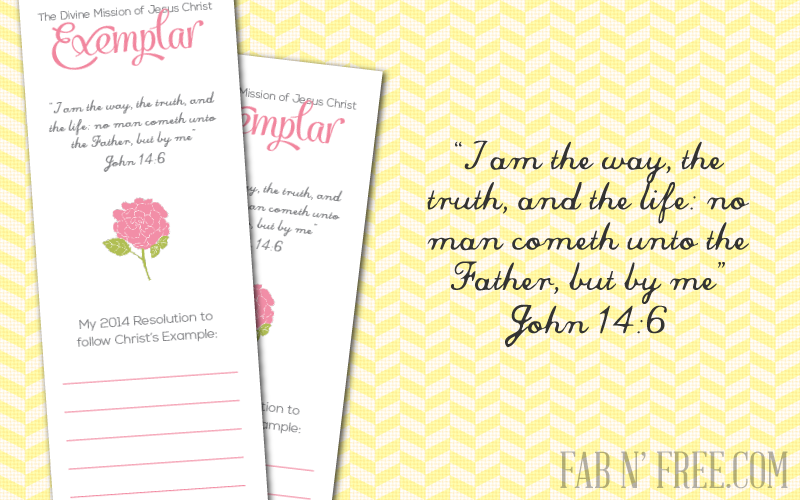 The Divine Mission of Jesus Christ
Exemplar
"I am the way, the truth, and
the life: no man cometh unto
the Father, but by me"
John 14:6
My 2014 Resolution to
follow Christ's Example:
Mission of Jesus Christ
emplar
the truth, and
an cometh unto
but by me"
14:6
to
ample:
"I am the way, the
truth, and the life: no
man cometh unto the
Father, but by me"
John 14:6
FAB N' FREE.COM